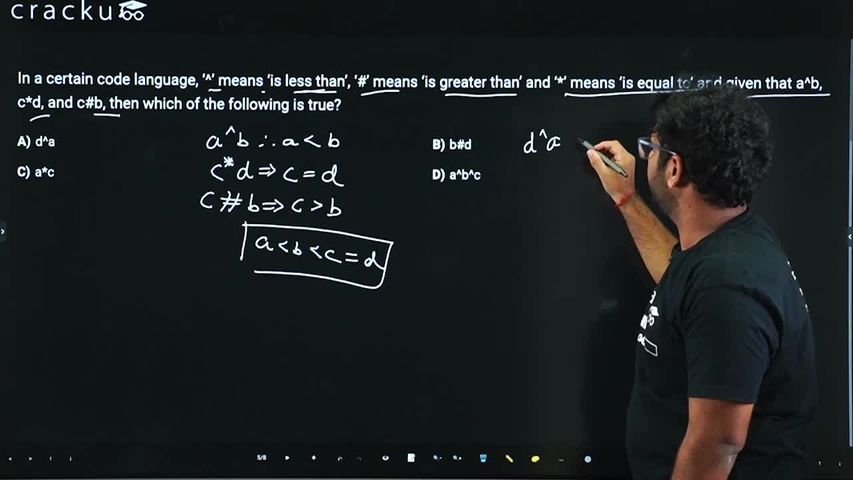 cracku
In a certain code language, '^' means 'is less than', '#' means 'is greater than' and '*' means 'is equal to' and given that a^b,
c*d, and c#b, then which of the following is true?
A) d^a
B) b#d
C) a*c
D) a^b^c
a^b ∴ a < b
c*d ⇒ c = d
c # b ⇒ c > b
a < b < c = d
d^a
5/8